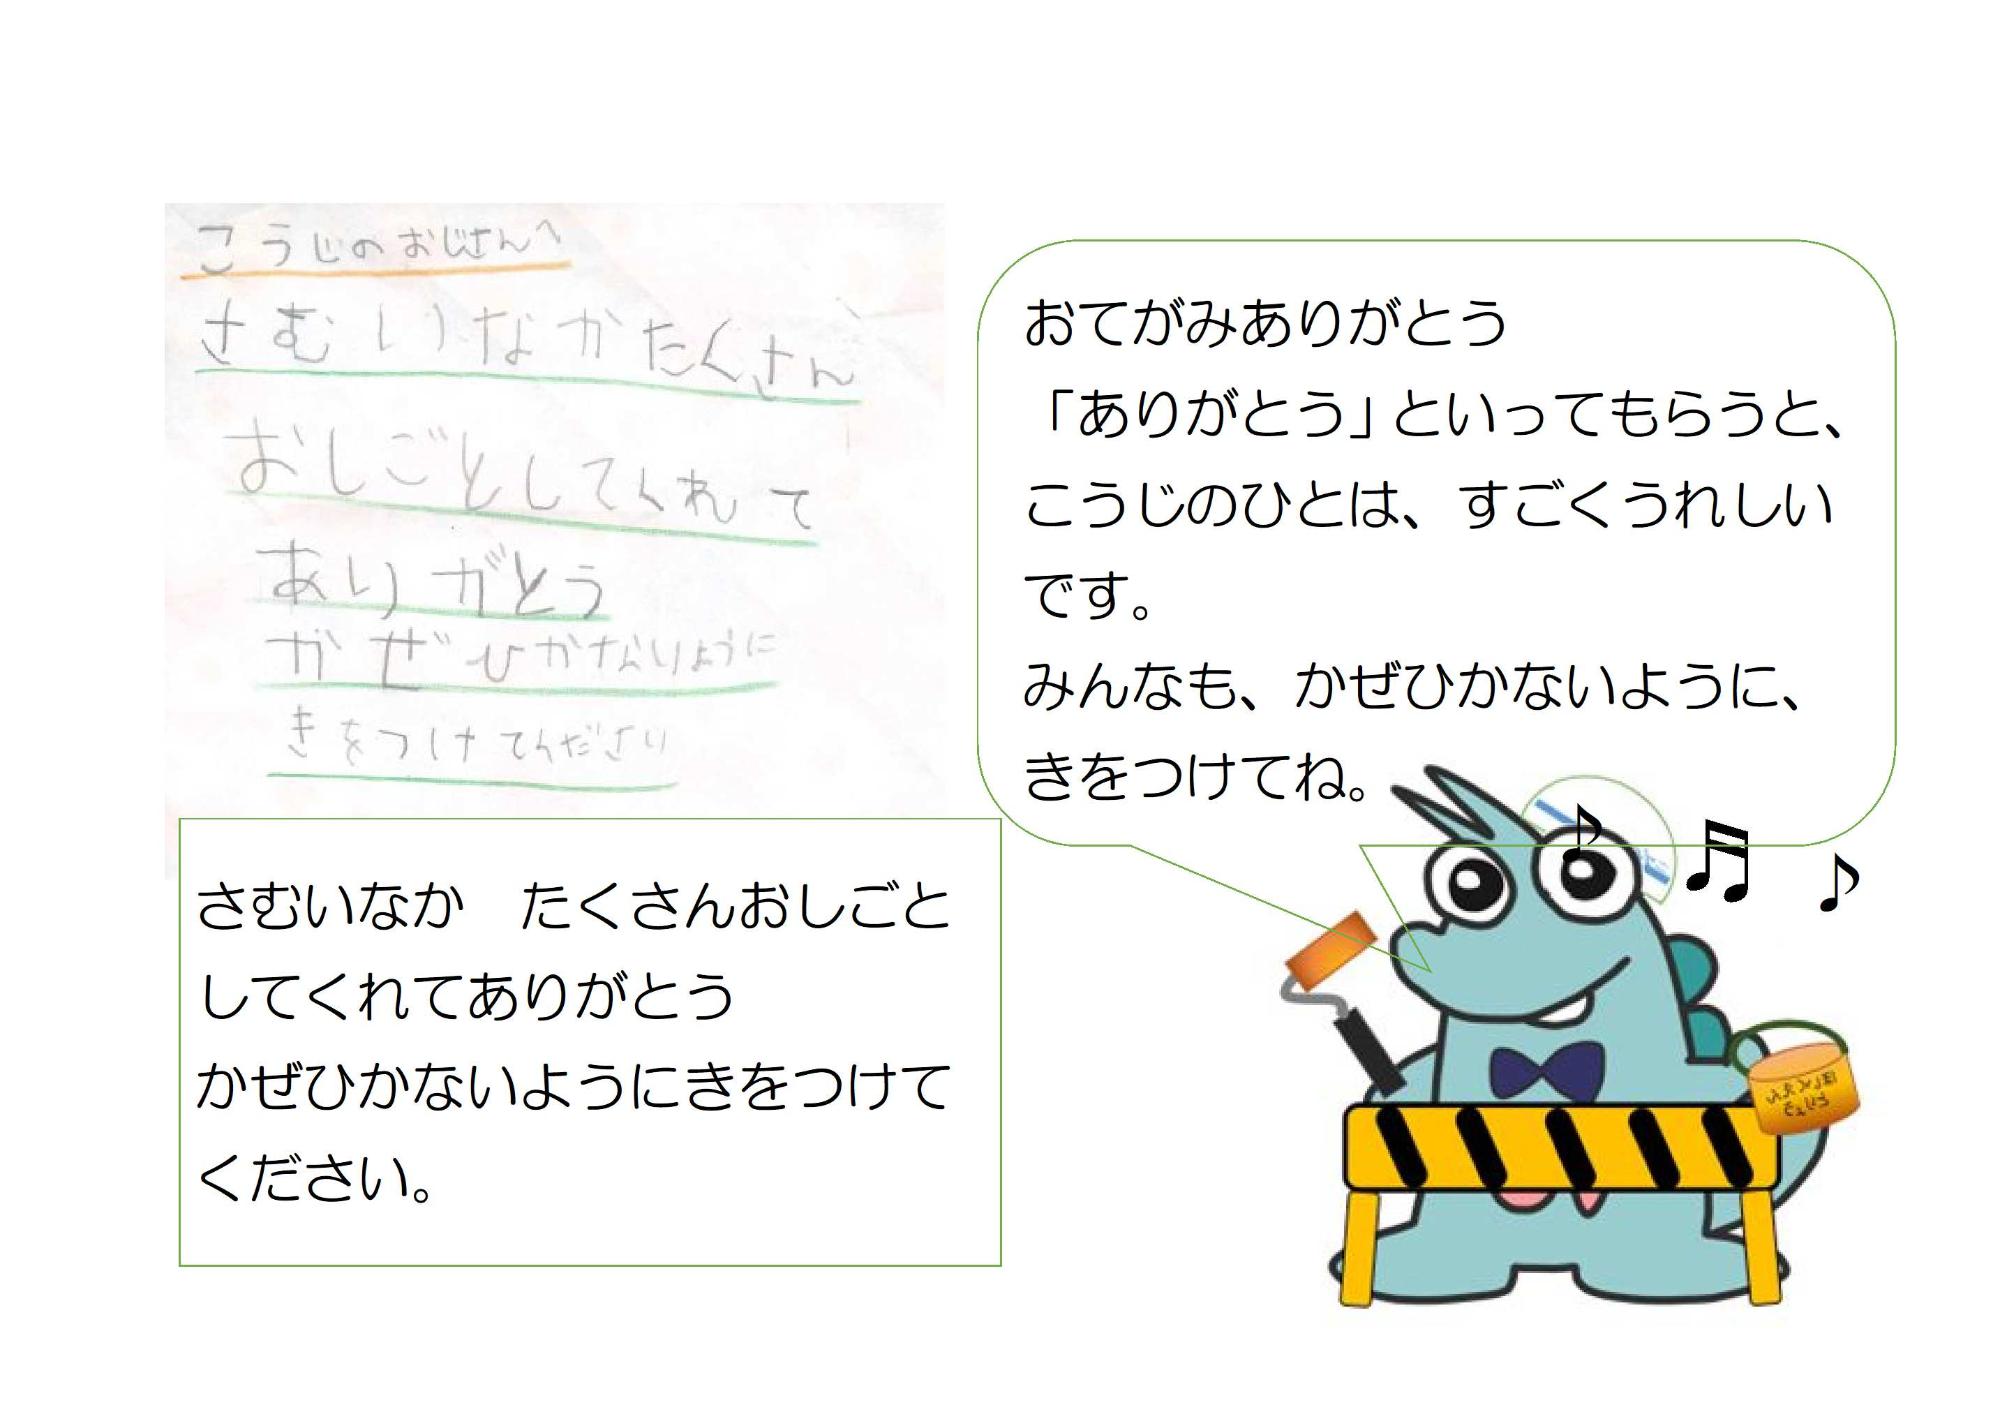 こうじのおじさんへ
さむいなかたくさん
おしごとしてくれて
ありがとう
かぜひかないように
きをつけてください
さむいなか　たくさんおしごと
してくれてありがとう
かぜひかないようにきをつけて
ください。
おてがみありがとう
「ありがとう」といってもらうと、
こうじのひとは、すごくうれしい
です。
みんなも、かぜひかないように、
きをつけてね。